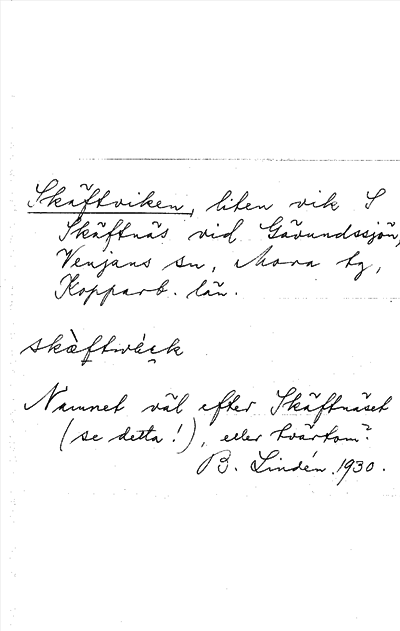 Skäftviken, liten vik S
Skäftnäs vid Gävundssjön,
Venjans sn, Mora tg,
Kopparb. län.
skæ̀ftwìk
Namnet väl efter Skäftnäset
(se detta!), eller tvärtom?
B. Lindén. 1930.